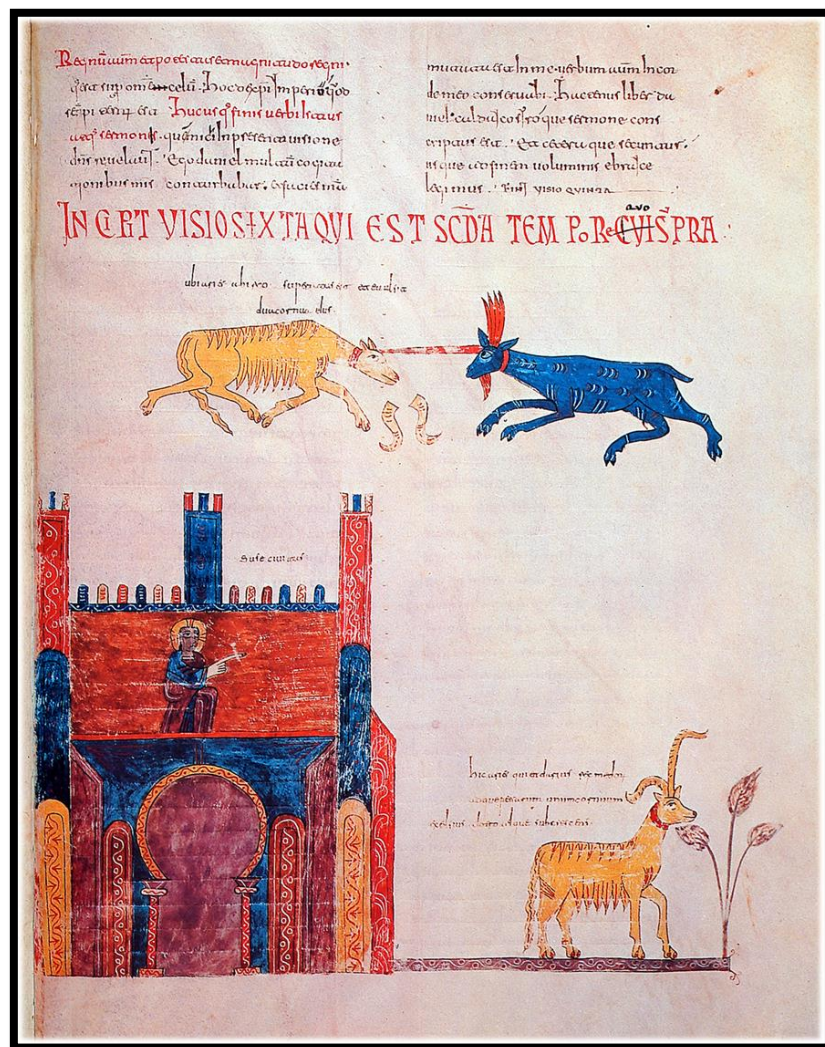 Regnū et potestas et magnitudo regni
est sup omnē celū. hoc de xp̄i imperio qod
est. hucusq̄ finis verbi
sermonis. in presenti visione
dn̄s revelavit. Ego daniel multū cogita
tionibus meis conturbabar. et facies mea
mutata est in me. verbum aūm in cor
de meo conservabi. hactenus liber da
niel. caldaico siroque sermone cons
criptus est. Et cetera que secuntur.
usque ad finem voluminis ebrayce
legimus. Finit visio quinta
QVO
INCIPT VISIO SIXTA QUI EST SCDA TEMPORE CUIS PRA
ubi aries ab irco superatus est et evulsa
duo cornua eius.
suse civitas
hic aries qui et darius rex medor
unum cornuum
excelsius atque subcrescens.